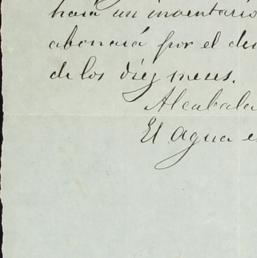 hará un inventario
abonará por el de
de los diez meses.
Alcabala
El agua e